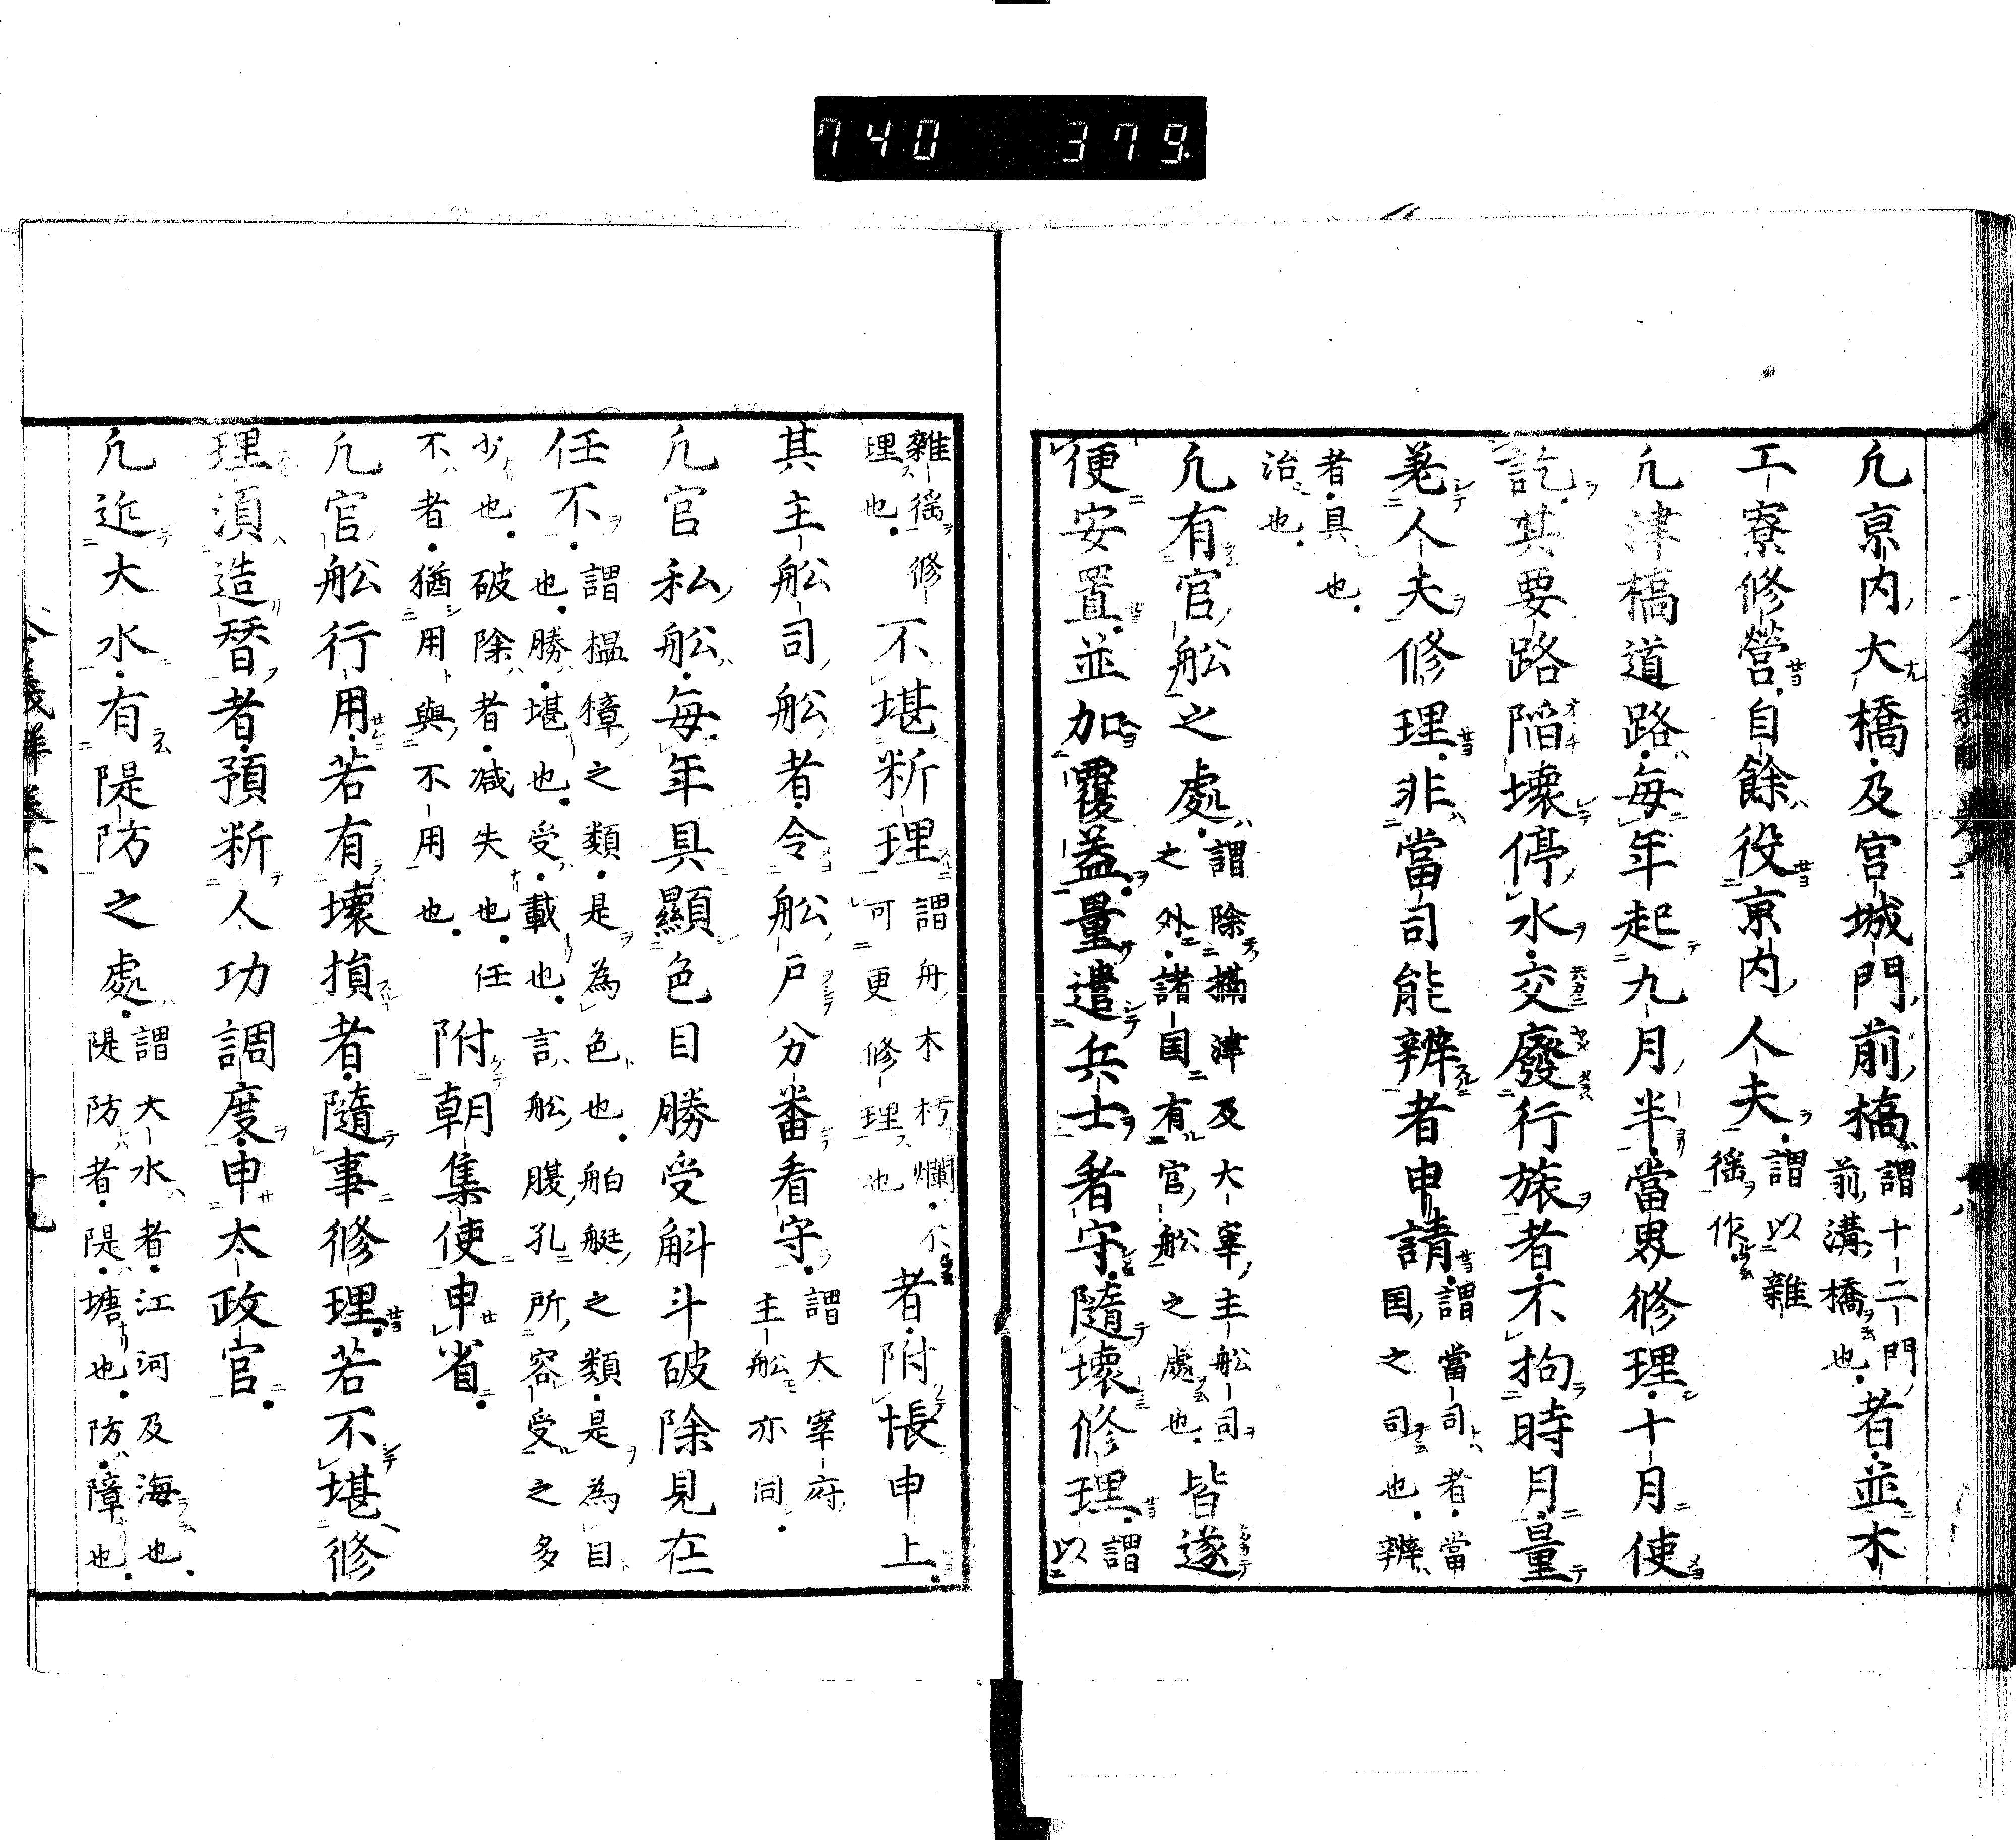 740 379
凢京内大橋及宮城門前橋謂十二門前溝橋也者並木
工寮修營自餘役京内人夫謂以雜徭作
凢津橋道路毎年起九月半當界修理十月使
訖其要路陥壊停水交廢行旅者不拘時月量
差人夫修理非當司能辨者申請謂當司者當国之司也辨
者具也治也
凢有官舩之處謂除攝津及大宰主舩司之外諸国有官舩之處也皆遂
便安置並加覆盖量遣兵士看守隨壊修理謂以
雜徭修理也不堪斬理謂舟木朽爛不可更修理也者附帳申上
其主舩司舩者令舩戸分番看守謂大宰府主舩亦同
凢官私舩毎年具顯色目勝受斛斗破除見在
任不謂搵樟之類是為色也舶艇之類是為目也勝堪也受載也言舩腹孔所容受之多
少也破除者减失也任不者猶用與不用也附朝集使申省
凢官舩行用若有壊損者隨事修理若不堪修
理湏造替者預斬人功調度申太政官
凢近大水有隄防之處謂大水者江河及海也隄防者隄塘也防障也